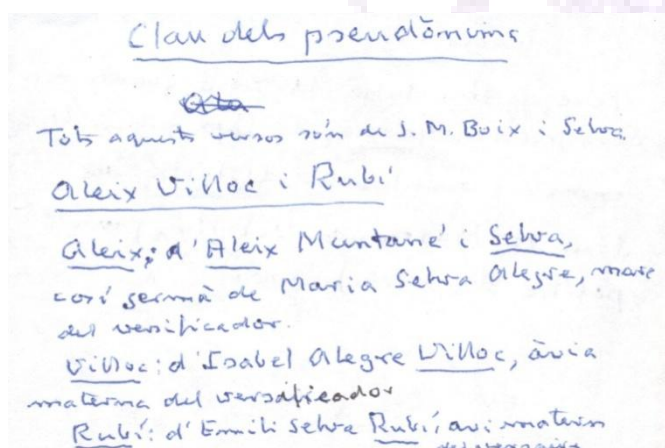 Clau dels pseudònims
Tots aquests versos són de J. M. Boix i Selva
Aleix Villoc i Rubí
Aleix: d'Aleix Muntané i Selva,
cosí germà de Maria Selva Alegre, mare
del versificador.
Villoc: d'Isabel Alegre Villoc, àvia
materna del versificador
Rubí: d'Emili Selva Rubí, avi matern